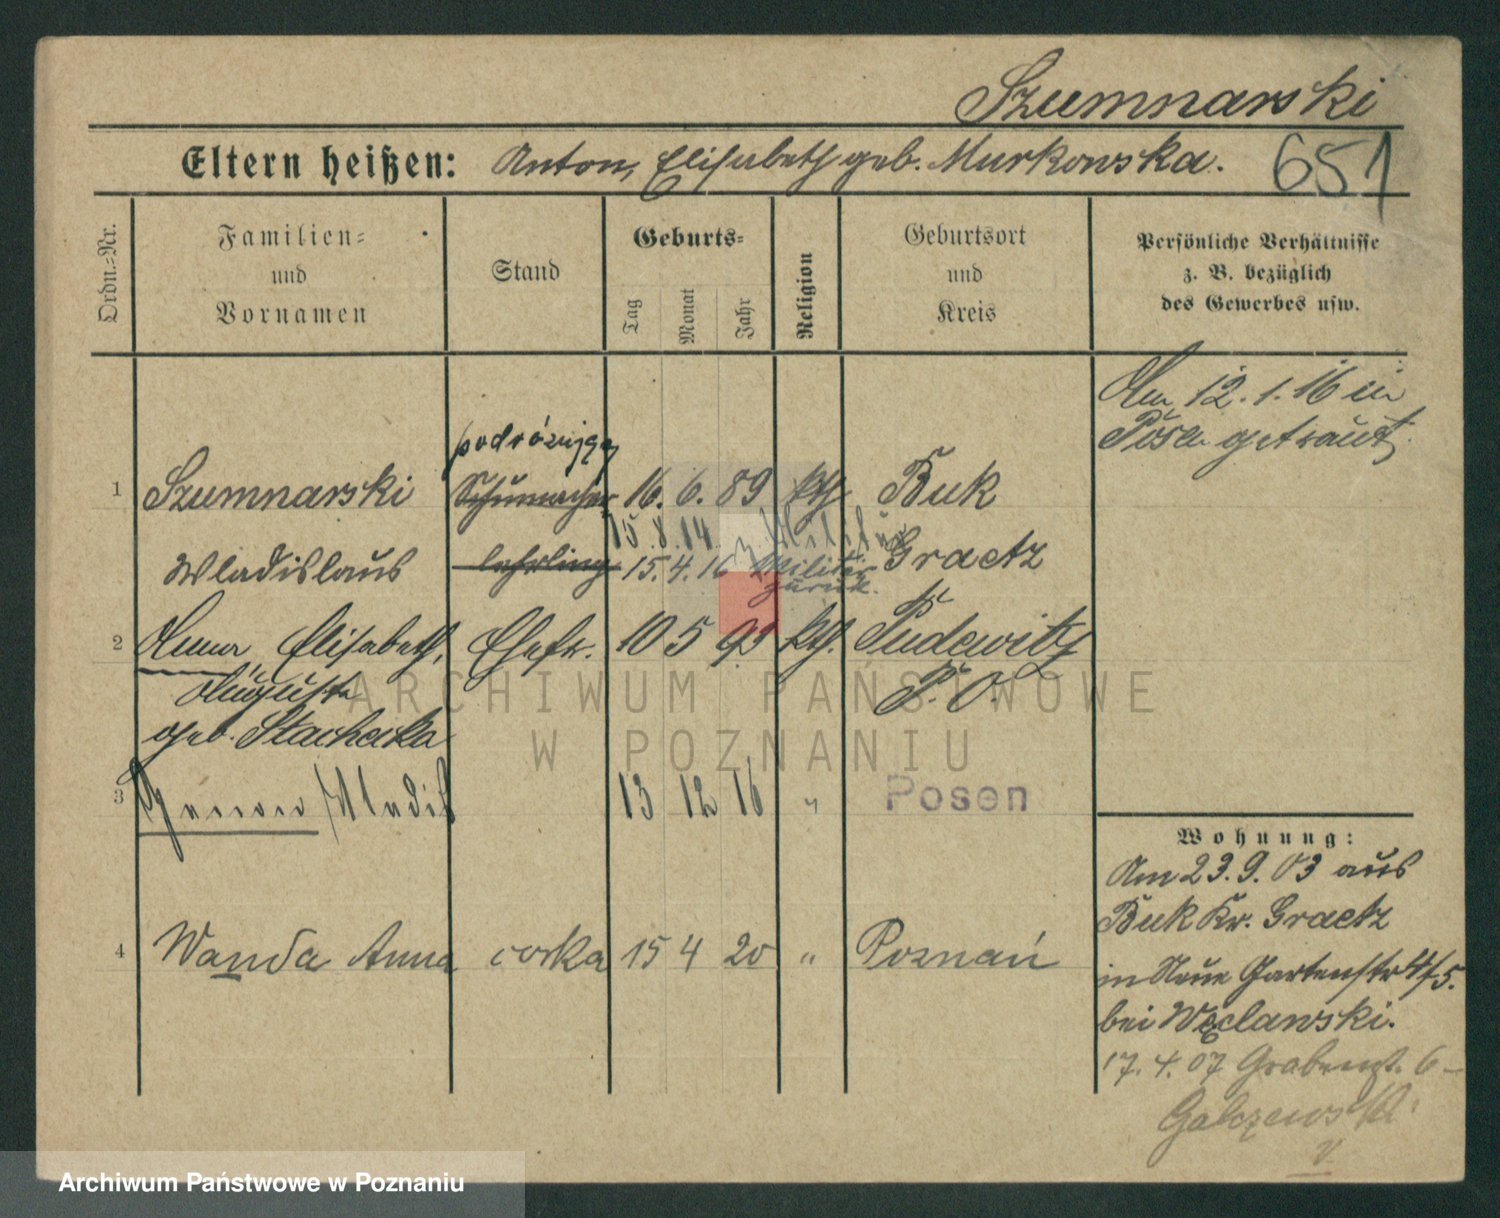 Szumnarski
Eltern heißen: Anton, Elisabeth geb. Murkowska.
651
Ordn.-Nr.
Familien-
und
Vornamen
Stand
Geburts-
Tag
Monat
Jahr
Religion
Geburtsort
und
Kreis
Persönliche Verhältnisse
z. B. bezüglich
des Gewerbes usw.
Am 12.1.16 in
Posen getraut
podróżujący
1 Szumnarski Schumacher 16. 6. 89 kth Buk
15.8.14. z. Militär
Wladislaus lehrling 15.4.16 v. Militär Graetz
zurück.
2 Anna Elisabeth, Ehefr. 10 5 93 kth. Pudewitz
Auguste P. O.
geb. Stachecka
3 Zenono Wladis 13 12 16 " Posen
4 Wanda Anna corka 15 4 20 " Poznań
Wohnung:
Am 23.9.03 aus
Buk Kr. Graetz
in Neue Gartenstr 4/5.
bei Węclawski.
17.4.07 Grabenst. 6 -
Galczewski
ARCHIWUM PAŃSTWOWE
W POZNANIU
Archiwum Państwowe w Poznaniu